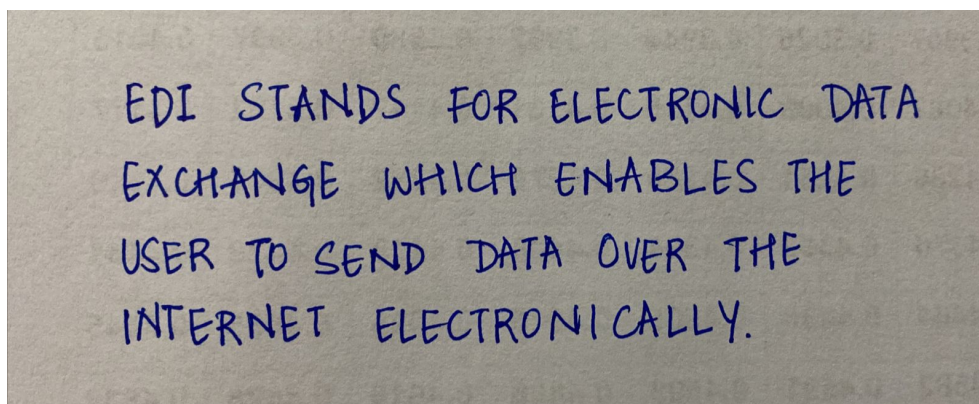 EDI STANDS FOR ELECTRONIC DATA
EXCHANGE WHICH ENABLES THE
USER TO SEND DATA OVER THE
INTERNET ELECTRONICALLY.